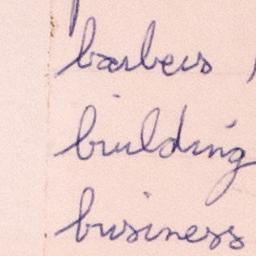 barbers
building
business